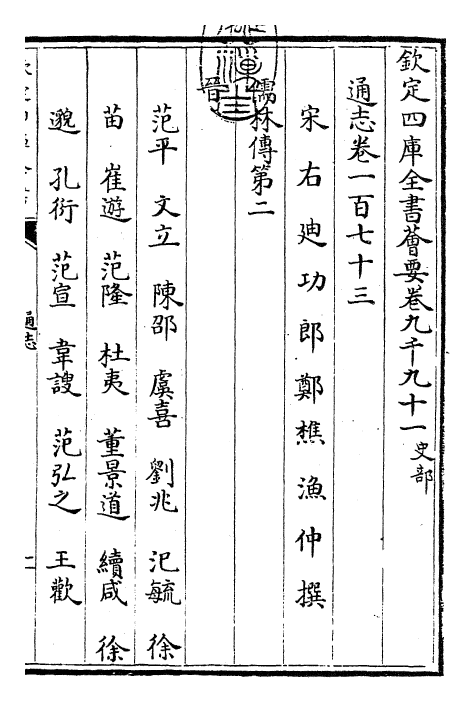 欽定四庫全書薈要卷九千九十一史部
通志卷一百七十三
宋右廸功郎鄭樵漁仲撰
儒林傳第二
晉
范平 文立 陳邵 虞喜 劉兆 氾毓 徐
苗 崔遊 范隆 杜夷 董景道 續咸 徐
邈 孔衍 范宣 韋謏 范弘之 王歡
通志
一